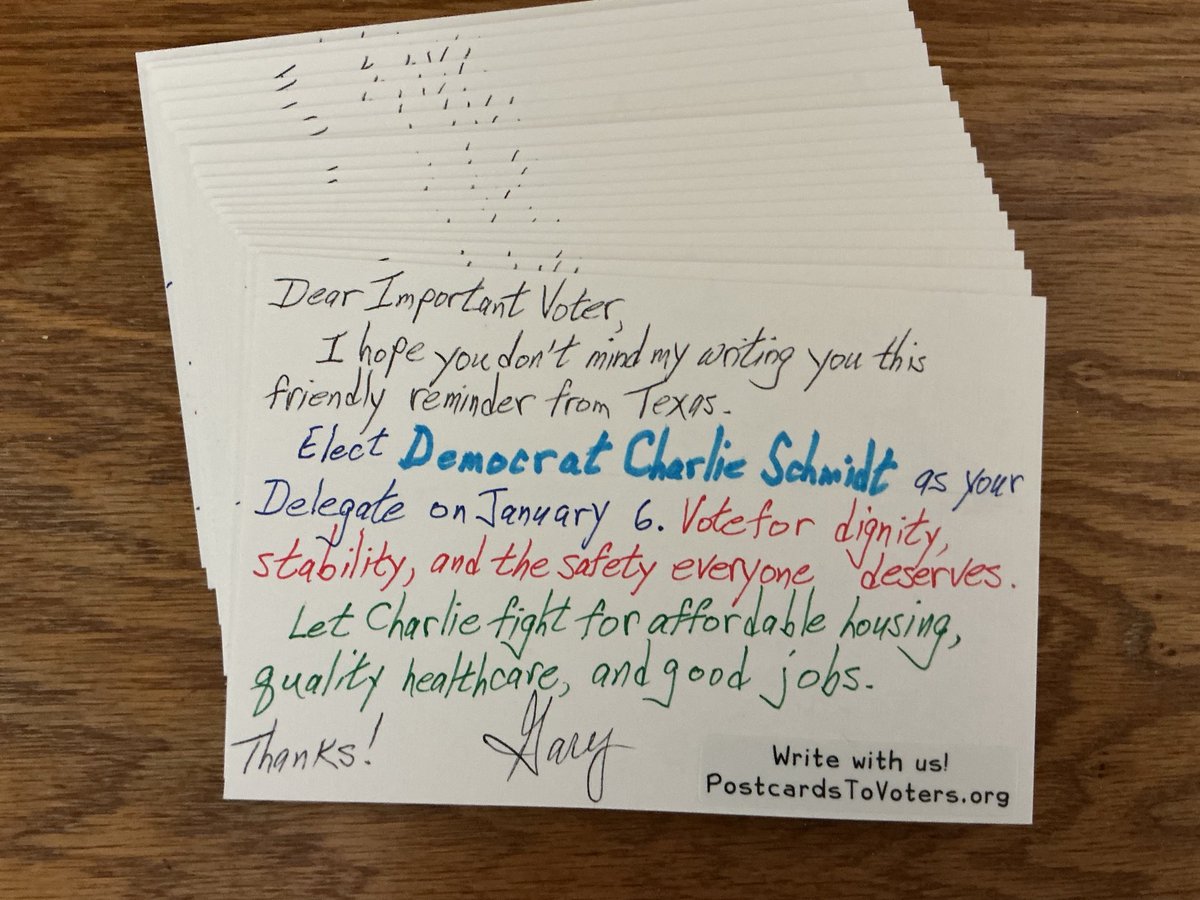 Dear Important Voter,
I hope you don't mind my writing you this
friendly reminder from Texas.
Elect Democrat Charlie Schmidt as your
Delegate on January 6. Vote for dignity,
stability, and the safety everyone deserves.
Let Charlie fight for affordable housing,
quality healthcare, and good jobs.
Thanks! Gary
Write with us!
PostcardsToVoters.org